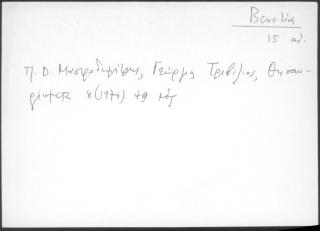 Βενετία
15 αι.
Π. Δ. Μαστροδημήτρης, Γεώργιος Τριβιζίος, Θησαυ-
ρίσματα 8 (1971) 49 κέξ